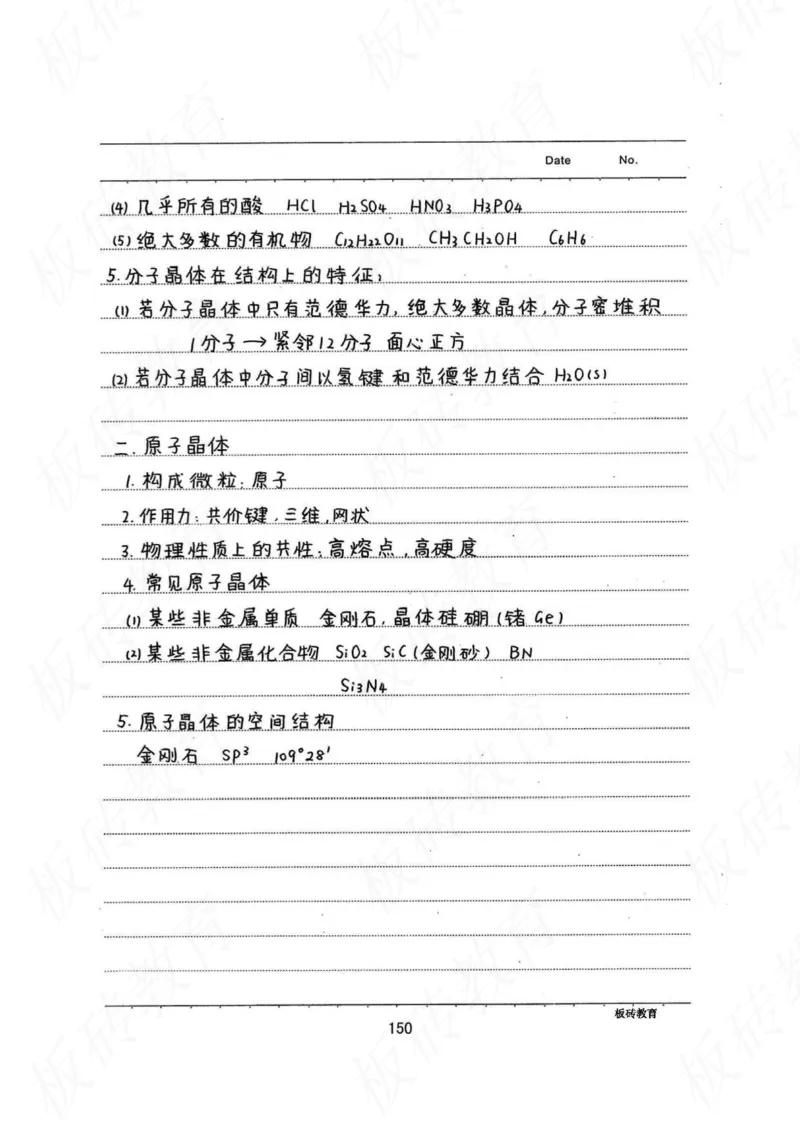 Date No.
(4) 几乎所有的酸 HCl H2SO4 HNO3 H3PO4
(5) 绝大多数的有机物 C12H22O11 CH3CH2OH C6H6
5.分子晶体在结构上的特征:
(1) 若分子晶体中只有范德华力, 绝大多数晶体,分子密堆积
1分子→紧邻12分子 面心正方
(2) 若分子晶体中分子间以氢键和范德华力结合 H2O(s)
二.原子晶体
1. 构成微粒:原子
2. 作用力:共价键,三维,网状
3. 物理性质上的共性:高熔点,高硬度
4. 常见原子晶体
(1) 某些非金属单质 金刚石,晶体硅 硼 (锗 Ge)
(2) 某些非金属化合物 SiO2 SiC(金刚砂) BN
Si3N4
5. 原子晶体的空间结构
金刚石 SP3 109°28'
板砖教育
150